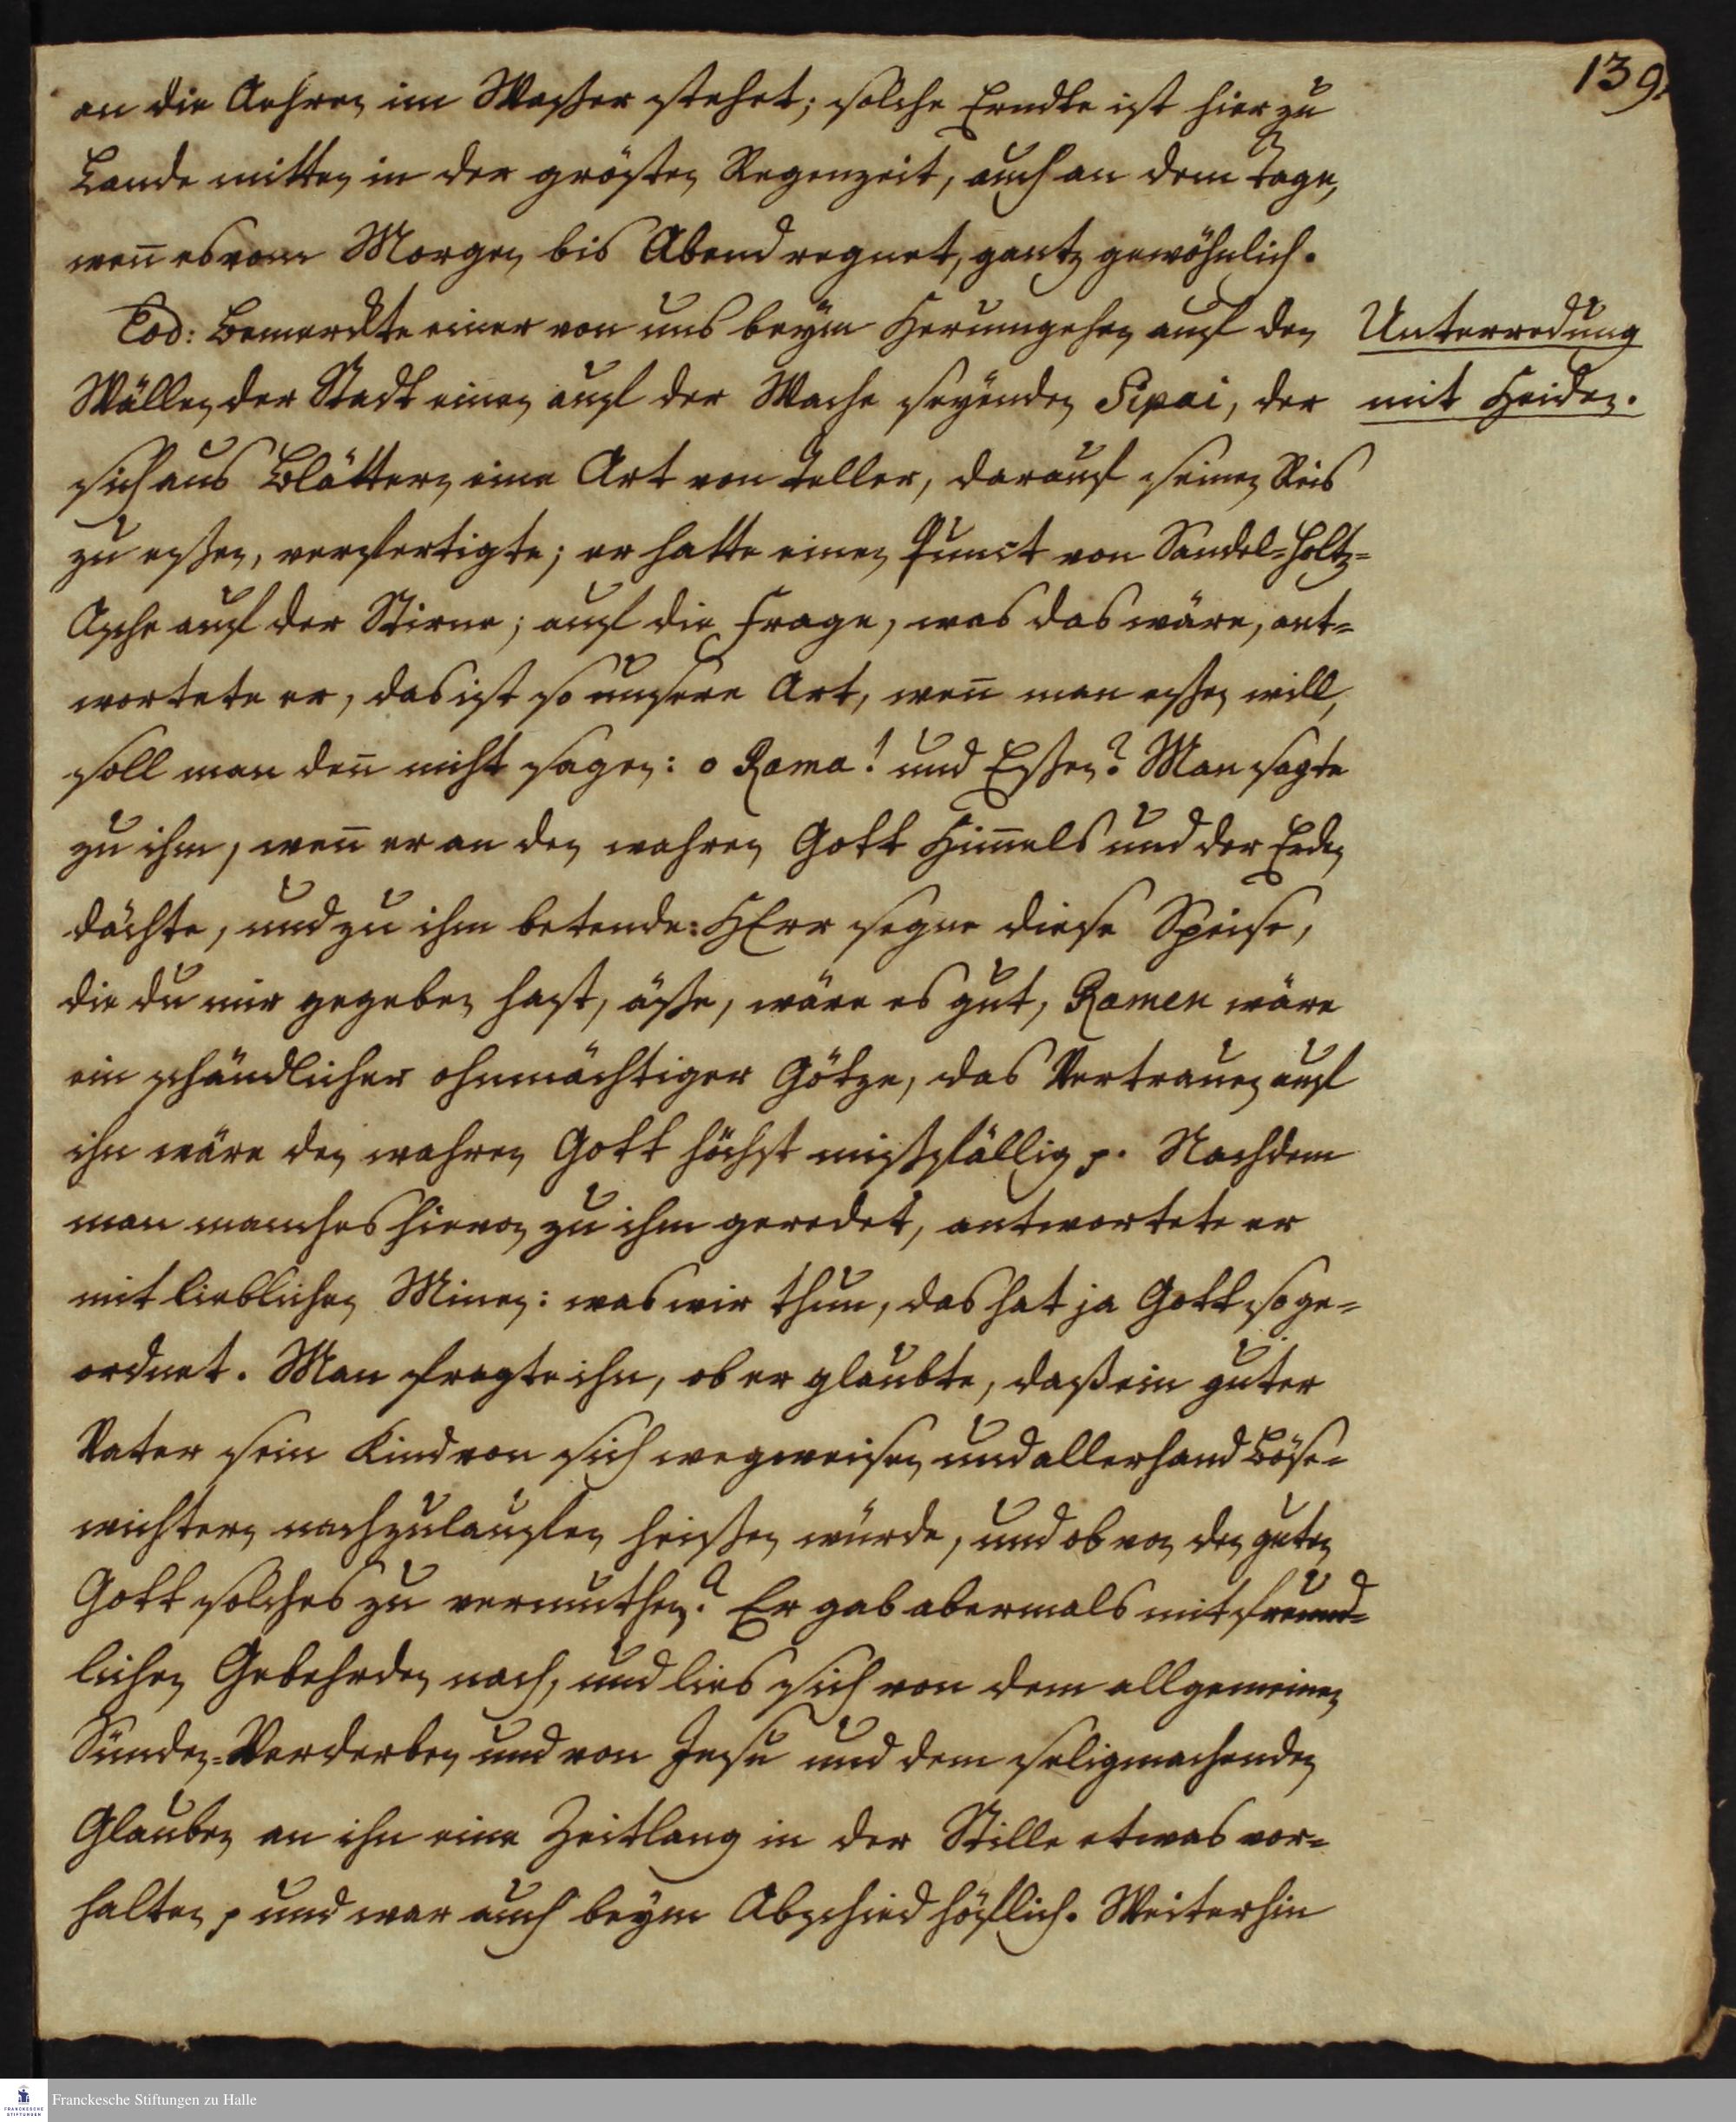 139.
an die Aehren im Waßer stehet; solche Erndte ist hier zu
Lande mitten in der grösten Regenzeit, auch an dem Tage,
weñ es vom Morgen bis Abend regnet, gantz gewöhnlich.
Eod: bemerckte einer von uns beÿm Herumgehen auf den
Wällen der Stadt einen auf der Wache seÿenden Sipai, der
sich aus Blättern eine Art von Teller, darauf seinen Reis
zu eßen, verfertigte; er hatte einen Punct von Sandel-Holtz-
Asche auf der Stirne; auf die Frage, was das wäre, ant-
wortete er, das ist so unsere Art, weñ man eßen will,
soll man deñ nicht sagen: o Rama! und Eßen? Man sagte
zu ihm, weñ er an den wahren Gott Him̃els und der Erden
dächte, und zu ihm betende: HErr segne diese Speise,
die du mir gegeben hast, äße, wäre es gut, Ramen wäre
ein schändlicher ohnmächtiger Götze, das Vertrauen auf
ihn wäre den wahren Gott höchst mißfällig p. Nachdem
man manches hievon zu ihm geredet, antwortete er
mit lieblichen Minen: was wir thun, das hat ja Gott so ge-
ordnet. Man fragte ihn, ob er glaubte, daß ein guter
Vater sein Kind von sich wegweisen und allerhand Böse-
wichtern nachzulaufen heißen würde, und ob von den guten
Gott solches zu vermuthen? Er gab abermals mit freund-
lichen Gebehrden nach, und lies sich von dem allgemeinen
Sünden-Verderben und von Jesu und dem seligmachenden
Glauben an ihn eine Zeitlang in der Stille etwas vor-
halten p und war auch beÿm Abschied höflich. Weiterhin
Unterredung
mit Heiden.
Franckesche Stiftungen zu Halle
FRANCKESCHE
STIFTUNGEN